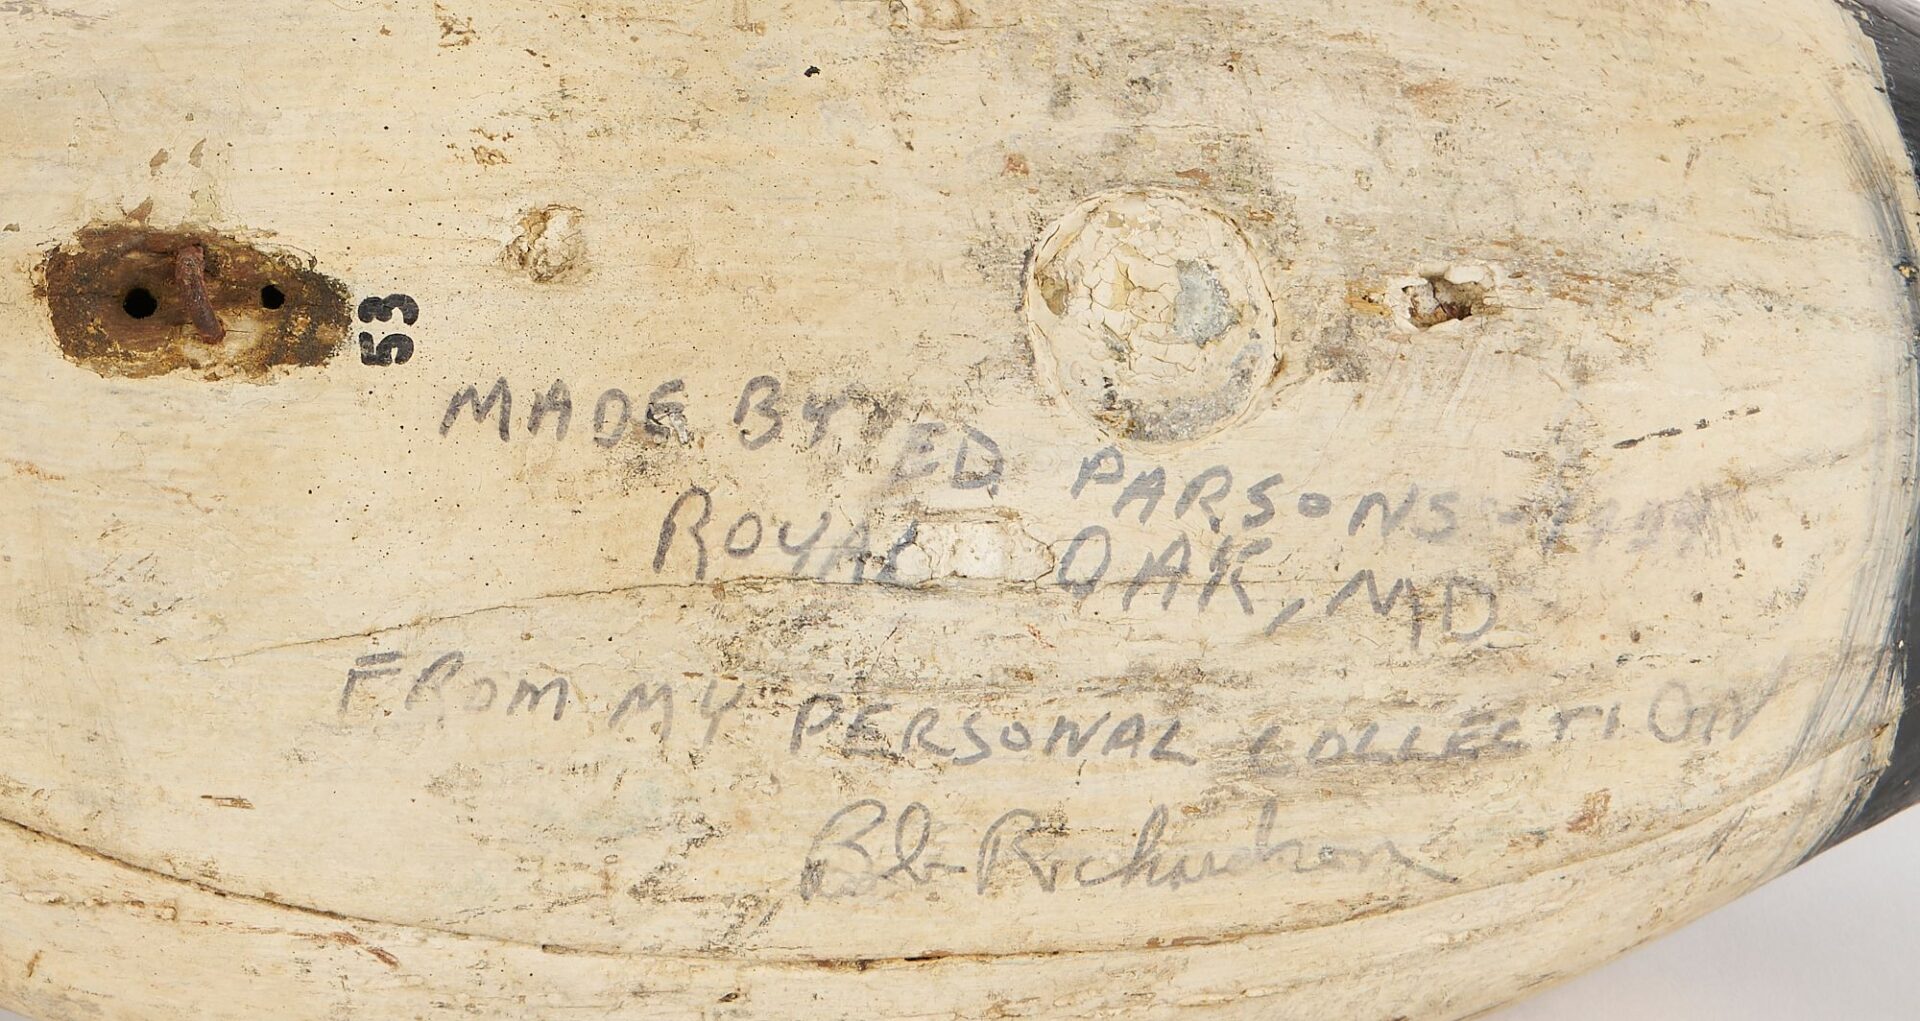 53
MADE BY ED PARSONS
ROYAL OAK, MD
FROM MY PERSONAL COLLECTION
Bob Richardson